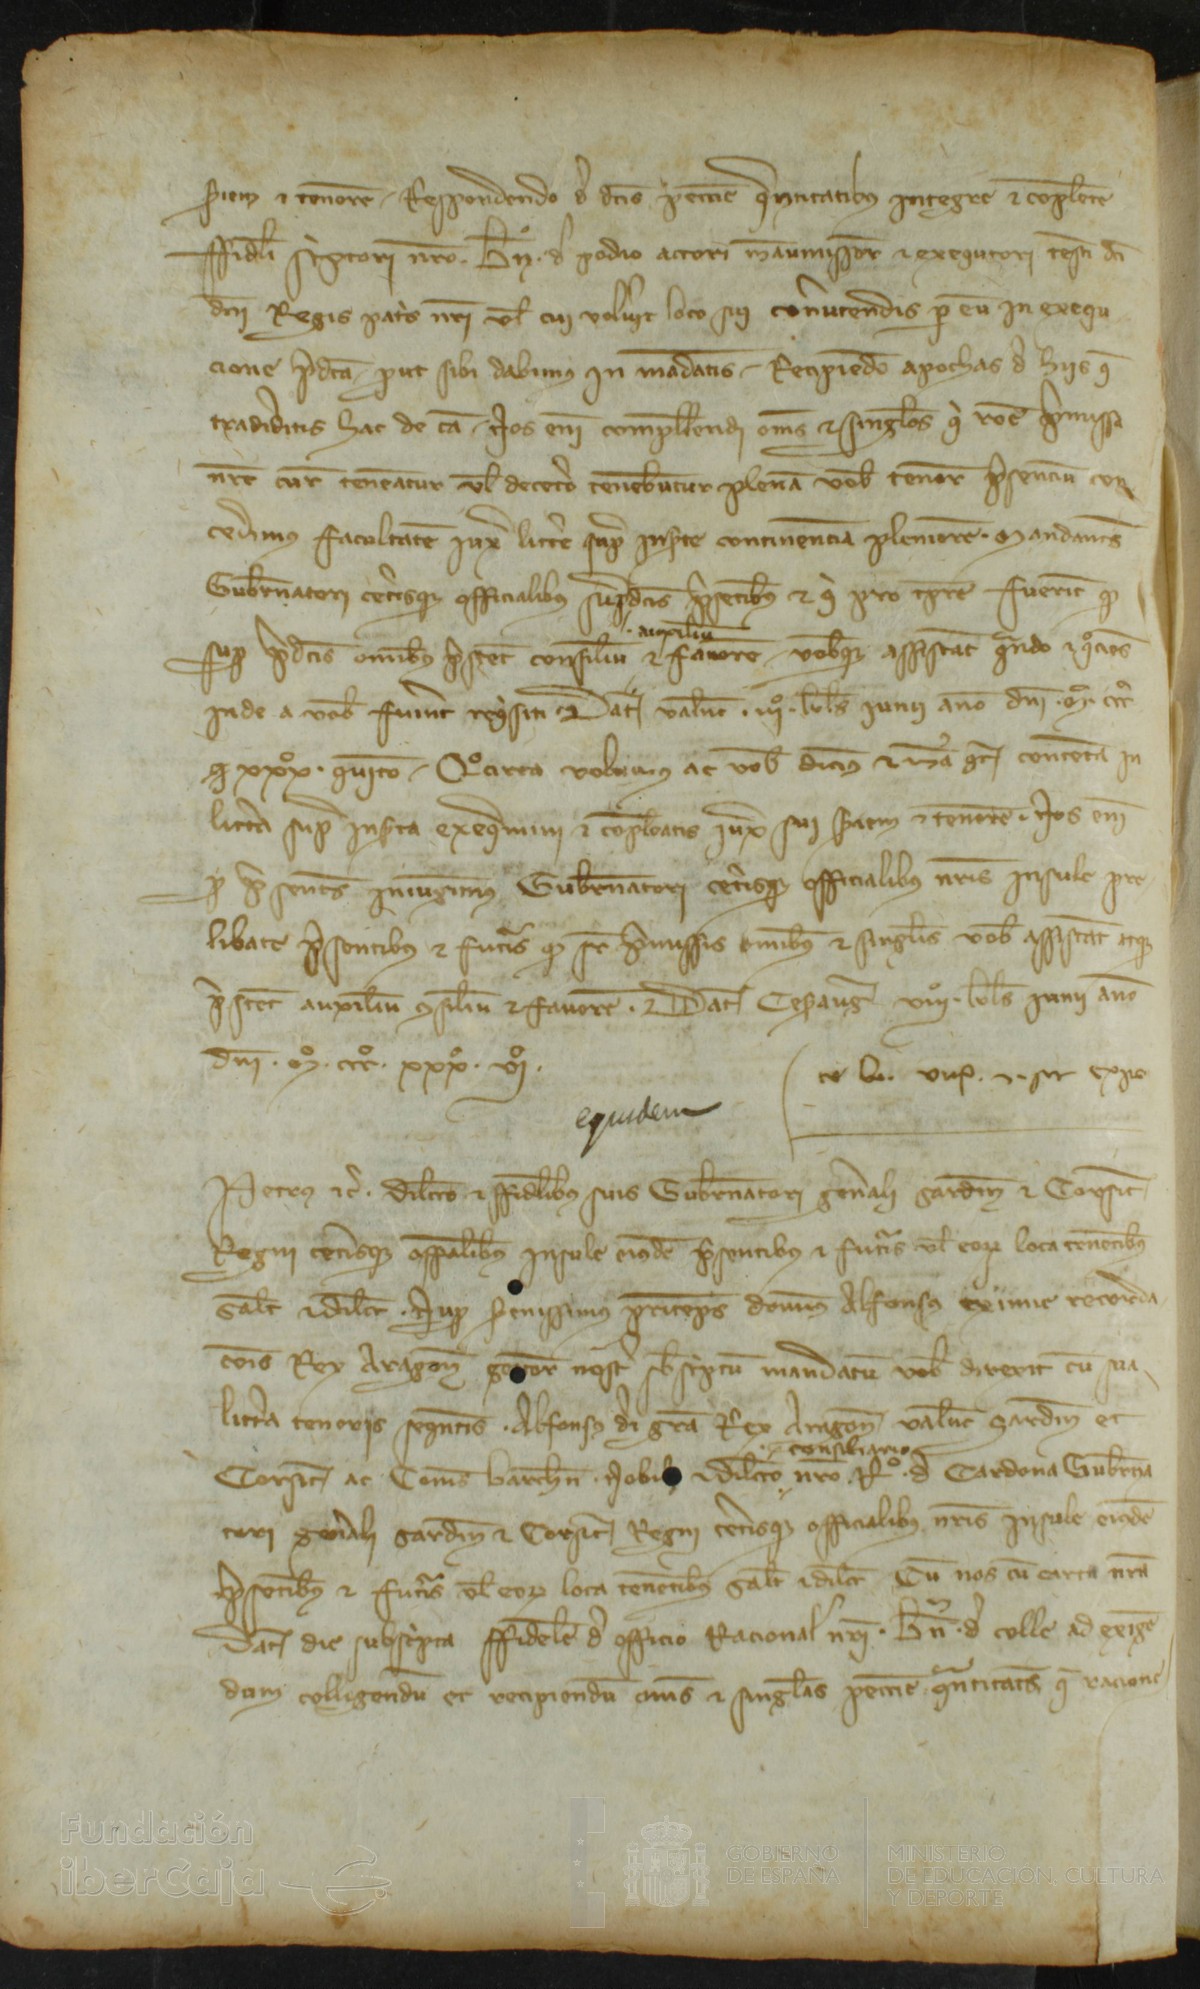 seriem et tenore Respondendo de dcis peccie quantitatibus integre et complete
ffideli scriptori nro . Bn. de podio actori manumissor et exequtori testi dci
dni Regis patris nri vel cui voluerit loco sui convertendis per eum in exequ
cione predca prout sibi dabimus in mandatis Recipiendo apochas de hiis que
tradideritis hac de ca . Nos eni compellendi oms et singulos qui roe premissa
nre cur teneatur vel decetero tenebuntur plena vob tenore presencium con
cedimus facultatem iuxta littere supra inserte continencia pleniore . Mandantes
Gubernatori ceterisque officialibus supradcis presentibus et qui pro tpre fuerint quod
super predcis omnibus prestent consilium auxilium et favore vobisque assistant quando et quociens
inde a vob fuerint requisiti Dat valenc . iiiº . kls iunii anno dni . Mº . CCCº
XXXº . quinto Quocirca volumus ac vob dicimus et manda contenta in
littera supra inserta exequimini et compleatis iuxta sui seriem et tenore . Nos eni
per presentes iniungimus Gubernatori ceterisque officialibus nris insule pre
libate presentibus et futuris quod super premissis omnibus et singulis vob assistant atque
prestent auxilium consilium et favore . Dat Cesaraug viiiº . kls iunii anno
dni . Mº . CCCº . XXXº . viº .
equidem
Petrus etc . dilecto et ffidelibus suis Gubernatori generali Sardin et Corsice
Regni ceterisque officialibus insule eiusdem presentibus et futuris vel eorum loca tenentibus
salt et dilect . Nup serenissimus princeps dominus Alfonsus eximie recorda
cois Rex Aragon genitor noster subscriptum mandatum vob direxit cum sua
littera tenoris sequentis . Alfonsus dei gra Rex Aragon valenc Sardin et
Corsice ac Comes barchn . Nobili et dilecto consiliario nro . Rº . de Cardona Guberna
tori generali Sardin et Corsice Regni ceterisque officialibus nris insule eiusdem
presentibus et futuris vel eorum loca tenentibus salt et dilect Cum nos cum carta nra
Dat die subscripta ffidele de officio Racionalis nri . Bn. de colle ad exigen
dum colligendum et recipiendum oms et singulas peccie quantitates que racione
Fundación
iberCaja
GOBIERNO
DE ESPAÑA
MINISTERIO
DE EDUCACIÓN, CULTURA
Y DEPORTE